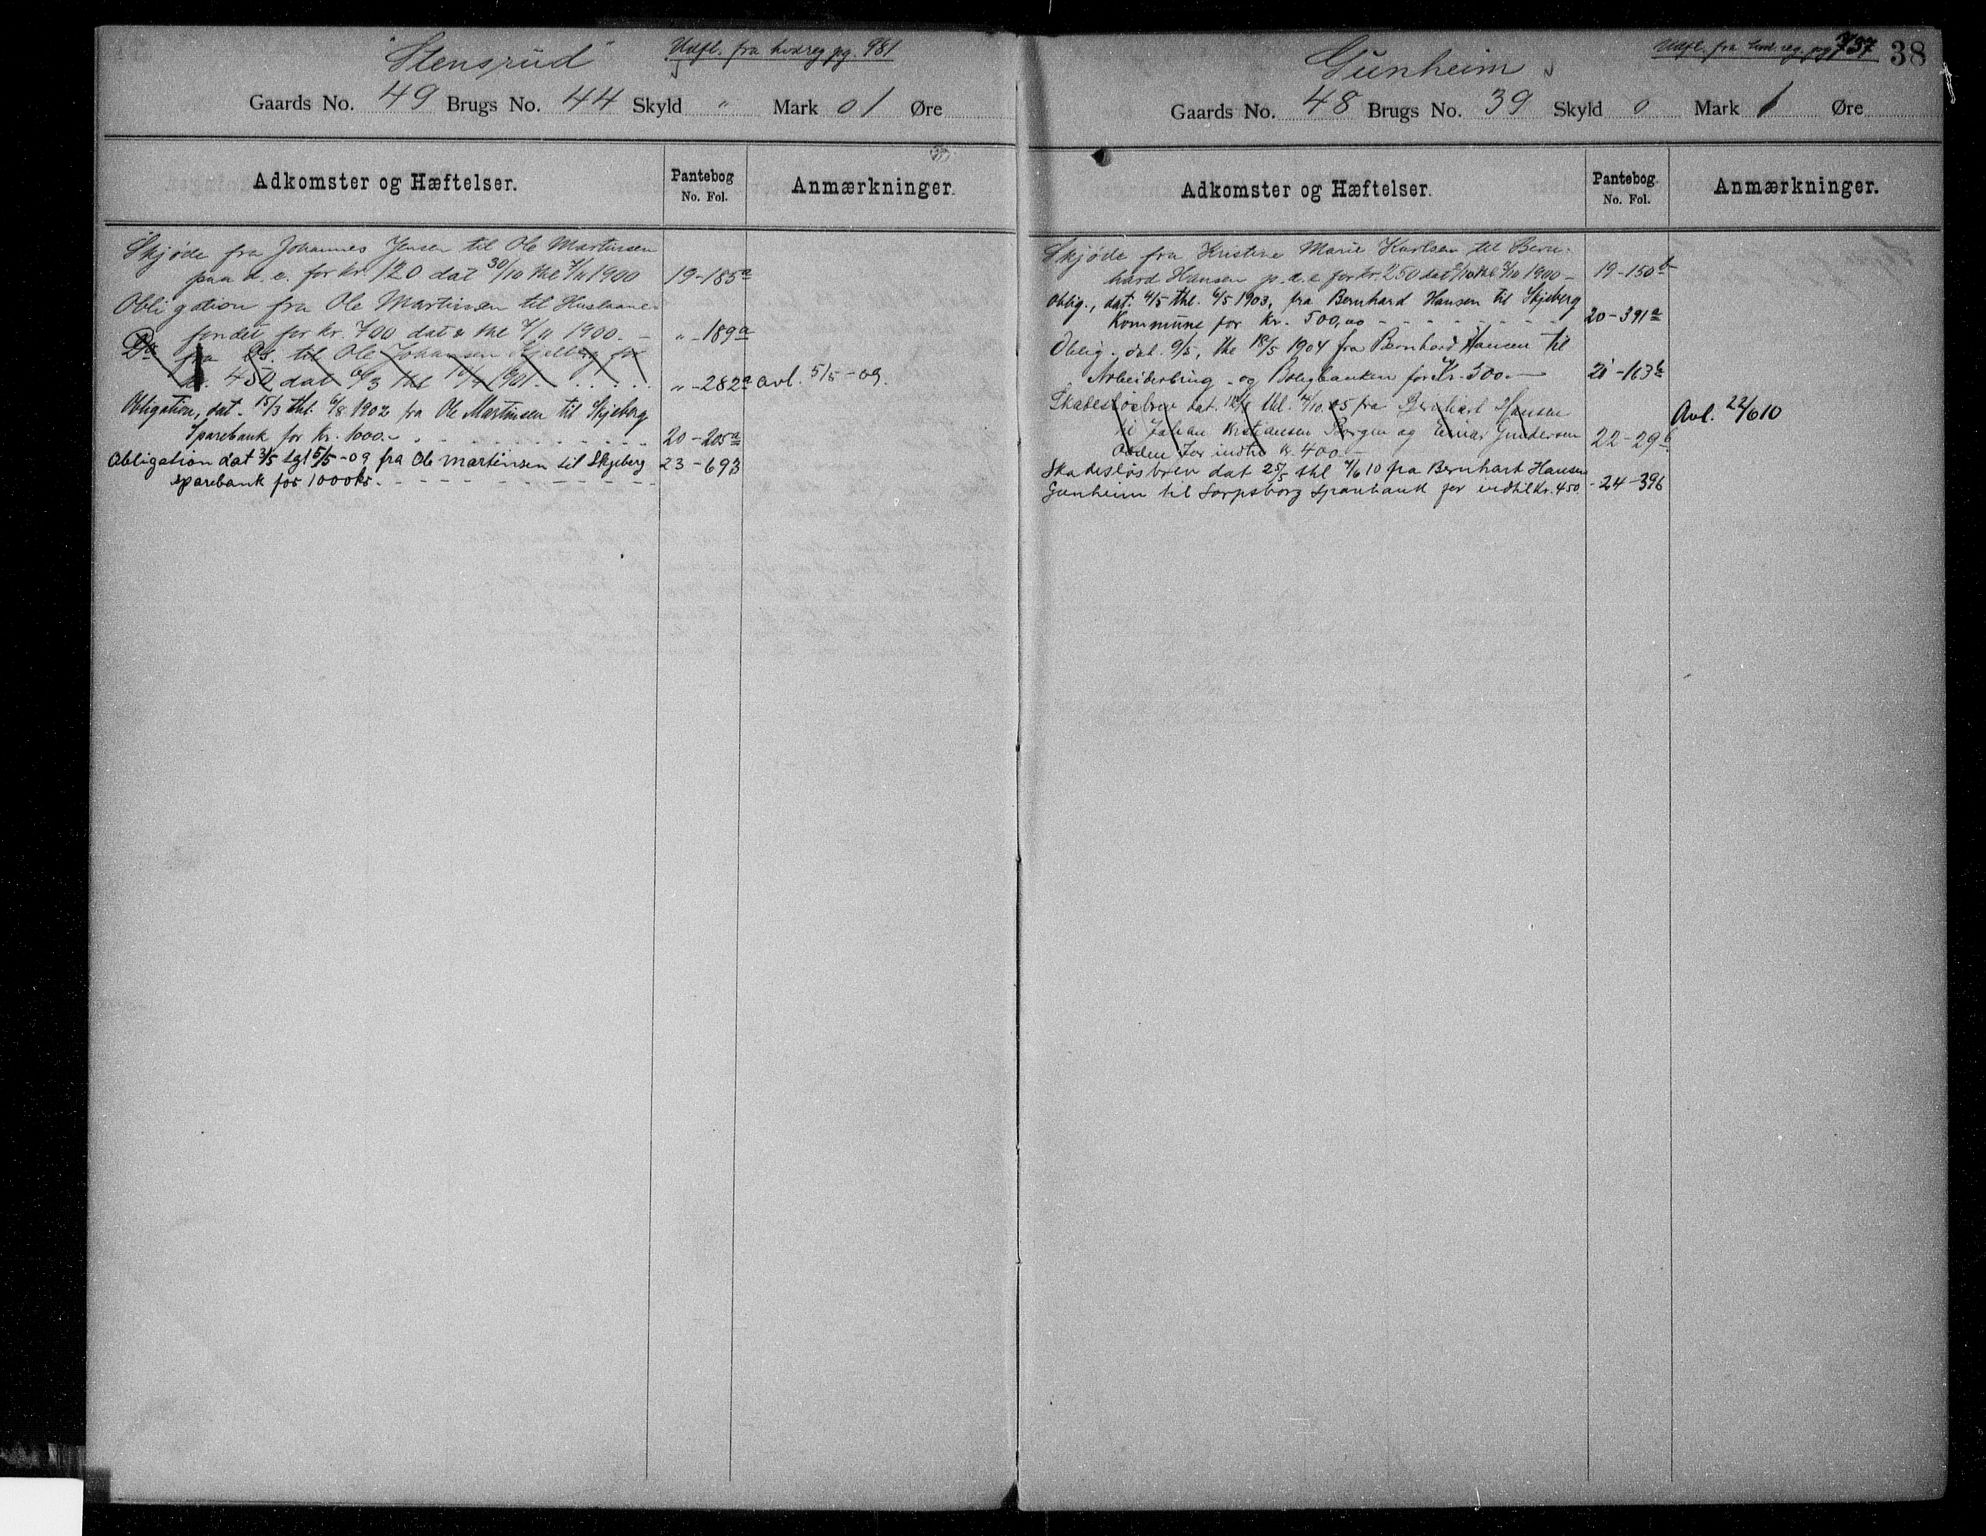 "Stensrud"
Udfl. fra hvdreg pg. 981
Gaards No. 49 Brugs No. 44 Skyld " Mark 01 Øre
Adkomster og Hæftelser.
Pantebog
No. Fol.
Anmærkninger.
Skjøde fra Johannes Jensen til Ole Martinsen
paa d. e. for kr. 120 dat 30/10 thl 7/11 1900
19-185a
Obligation fra Ole Martinsen til Husbanefondet for kr. 700 dat & thl 7/11 1900.-
"-189a
Do fra Ds. til Ole Johansen Kjelberg for
kr. 450 dat /3 thl 1901.
"-282a
avl. 5/5-09.
Obligation, dat. 15/3 thl. 6/8 1902 fra Ole Martinsen til Skjeberg
Sparebank for kr. 1000.-
20-205a
Obligation dat 3/5 tgl 5/5-09 fra Ole Martinsen til Skjeberg
sparebank for 1000 kr.
23-693
Gunheim
Udfl. fra hvd. reg. pag 737
38
Gaards No. 48 Brugs No. 39 Skyld 0 Mark 1 Øre
Adkomster og Hæftelser.
Pantebog.
No. Fol.
Anmærkninger.
Skjøde fra Kristine Marie Karlsen til Bern-
hard Hansen p. d. e for kr. 250 dat /10 thl /10 1900-
19-150b
Oblig., dat. 4/5 thl. 6/5 1903, fra Bernhard Hansen til Skjeberg
Kommune for kr. 500,00
20-391a
Oblig. dat. 9/5, thl 18/5 1904 fra Bernhard Hansen til
Arbeiderbrug- og Boligbanken for Kr. 500.-
21-163b
Skadesløsbrev dat. thl. /10.05 fra Bernhart Hansen
til Johan Kristiansen Borgen og Einar Gundersen
for indtil kr. 400.-
22-29b
Avl. 22/6 10
Skadesløsbrev dat 25/5 thl 4/6 10 fra Bernhart Hansen
Gunheim til Sarpsborg Sparebank for indtil kr. 450
-24-396